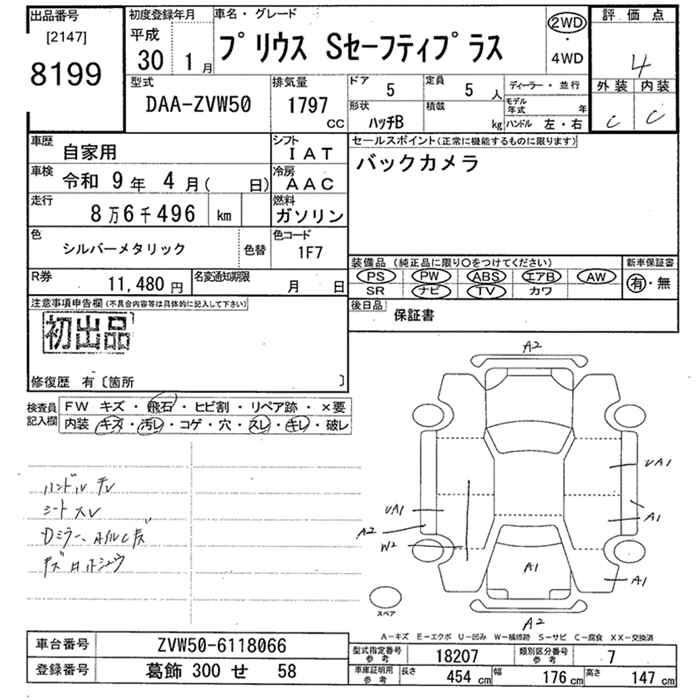 出品番号
[2147]
8199
初度登録年月
平成
30 1月
車名・グレード
プリウス Sセーフティプラス
2WD
・
4WD
評価点
4
外装 内装
C C
型式
DAA-ZVW50
排気量
1797
CC
ドア 5
定員 5人
形状 ハッチB
積載 kg
ディーラー・並行
モデル年式 年
ハンドル 左・右
車歴 自家用
シフト IAT
車検 令和 9年 4月( 日)
冷房 AAC
走行 8万6千496 km
燃料 ガソリン
色 シルバーメタリック 色替
色コード 1F7
R券 11,480円
名変通知期限 月 日
セールスポイント(正常に機能するものに限ります)
バックカメラ
装備品(純正品に限り○をつけてください)
新車保証書
PS PW ABS エアB AW
SR ナビ TV カワ
有・無
後日品 保証書
注意事項申告欄(不具合内容等は具体的に記入して下さい)
初出品
修復歴 有〔箇所 〕
検査員記入欄
FW キズ・飛石・ヒビ割・リペア跡・×要
内装 キズ・汚レ・コゲ・穴・スレ・キレ・破レ
ハンドル
シートスレ
Dミラー
A2
UA1
UA1
A2
A1
W2
A1
A1
A2
スペア
A-キズ E-エクボ U-凹み W-補修跡 S-サビ C-腐食 XX-交換済
車台番号 ZVW50-6118066
登録番号 葛飾 300 せ 58
型式指定番号 参考 18207
類別区分番号 参考 7
車庫証明用 参考
長さ 454 cm
幅 176 cm
高さ 147 cm